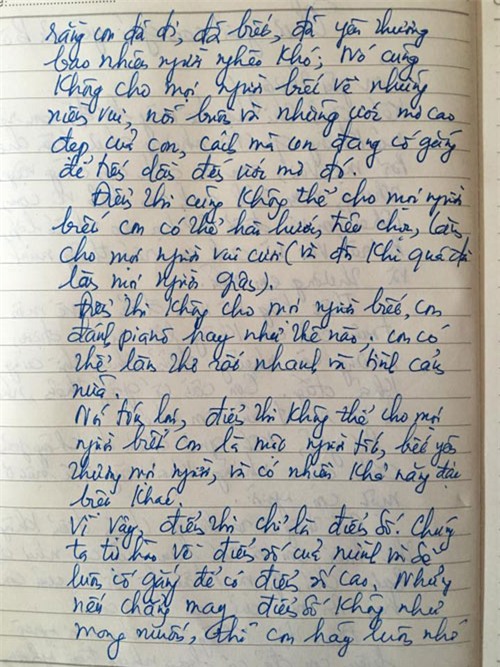 rằng con đã đi, đã biết, đã yêu thương
bao nhiêu người nghèo khó; Nó cũng
Không cho mọi người biết về những
niềm vui, nỗi buồn và những ước mơ cao
đẹp của con, cách mà con đang cố gắng
để tiến dần đến ước mơ đó.
Điểm thi cũng không thể cho mọi người
biết con có thể hài hước, tiếu chọc, làm
cho mọi người vui cười (và đôi khi quá đà
làm mọi người giận).
Điểm thi không cho mọi người biết, con
đánh pianô hay như thế nào. con có
thể làm thơ rất nhanh và tình cảm
nữa.
Nói tóm lại, điểm thi không thể cho mọi
người biết con là một người tốt, biết yêu
thương mọi người, và có nhiều khả năng đặc
biệt khác.
Vì vậy, điểm thi chỉ là điểm số. Chúng
ta tự hào về điểm số của mình và sẽ
luôn cố gắng để có điểm số cao. Nhưng
nếu chẳng may điểm số không như
mong muốn, thì con hãy luôn nhớ